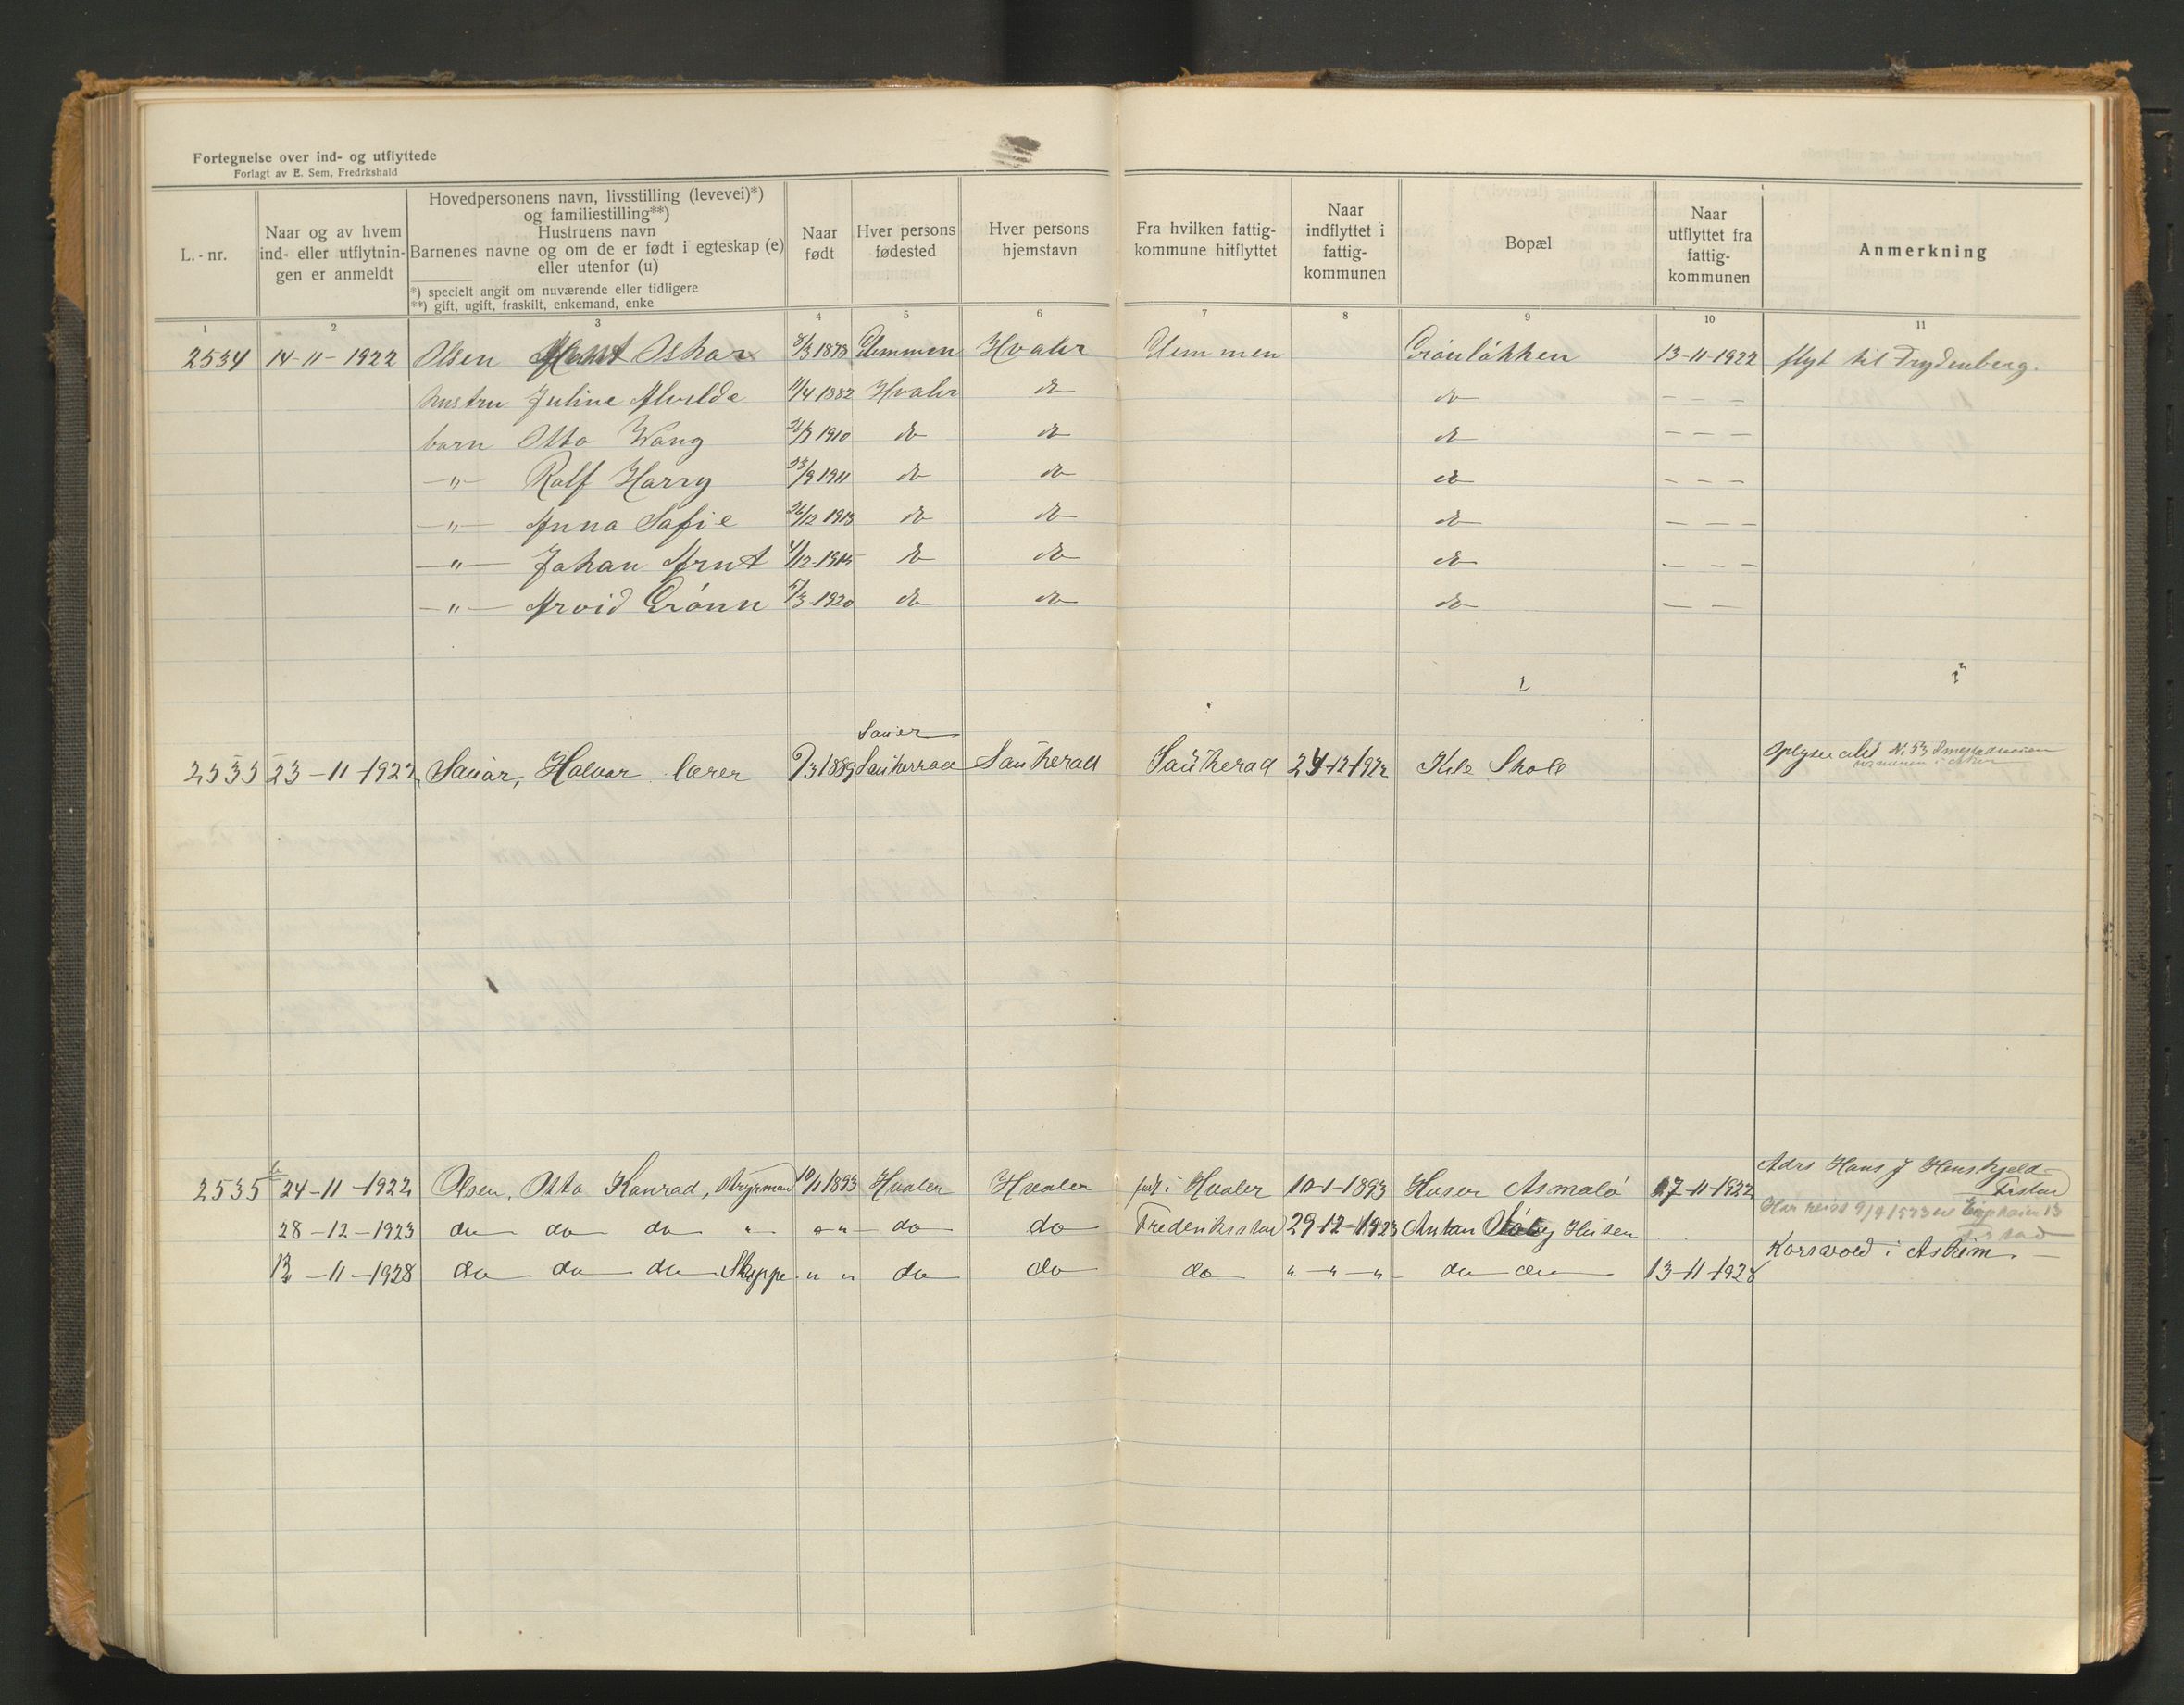 Fortegnelse over ind- og utflyttede
Forlagt av E. Sem, Fredrkshald
L.-nr.
Naar og av hvem ind- eller utflytnin-gen er anmeldt
Hovedpersonens navn, livsstilling (levevei)*)
og familiestilling**)
Hustruens navn
Barnenes navne og om de er født i egteskap (e)
eller utenfor (u)
*) specielt angit om nuværende eller tidligere
**) gift, ugift, fraskilt, enkemand, enke
Naar født
Hver persons fødested
Hver persons hjemstavn
Fra hvilken fattig-kommune hitflyttet
Naar indflyttet i fattig-kommunen
Bopæl
Naar utflyttet fra fattig-kommunen
Anmerkning
1 2 3 4 5 6 7 8 9 10 11
2534 14-11-1922 Olsen Oskar /3 1878 Glemmen Hvaler Glemmen Grönlökken 13-11-1922 flyt til Frydenberg.
hustru Juline Alvilde 11/4 1882 Hvaler do do - - -
barn Otto Wang 1910 do do do - - -
-"- Ralf Harry 23/9 1911 do do do - - -
-"- Anna Sofie 26/12 1913 do do do - - -
-"- Johan Arnt 4/12-1915 do do do - - -
-"- Arvid Grönn 5/3-1920 do do do - -
Sauer
2535 23-11-1922 Sauar, Halvar lærer 9/3 1889 Sauherad Sauherad Sauherad 24-12-1922 Kile Skole
2535 b 24-11-1922 Olsen, Otto Konrad, Styrmand 10/1 1893 Hvaler Hvaler født i Hvaler 10-1-1893 Huser Asmalö 27-11-1922 Adrs Hans J Henskjeld Frstad
28-12-1923 do do do " " " do do Fredriksstad 29-12-1923 Anton Huser
-11-1928 do do do Skippe " " do do do " " " do do 13-11-1928 Korsvold i Askim.